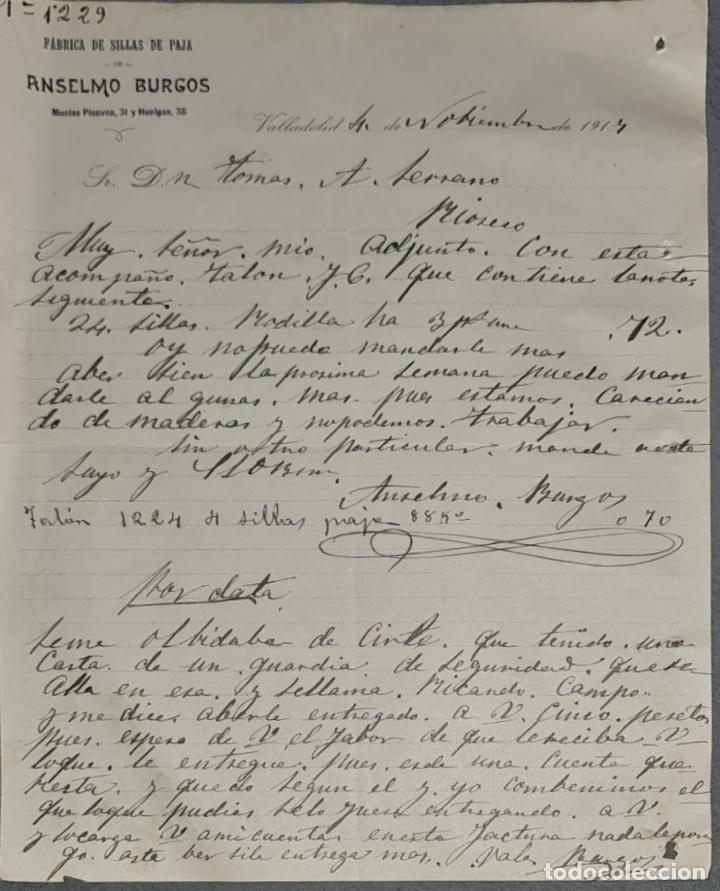 1=1229
FÁBRICA DE SILLAS DE PAJA
DE
ANSELMO BURGOS
31 y Huelgas, 38
Valladolid 4 de Noviembre de 191
Sr. Dn Tomas. A. Serrano
Rioseco
Muy. Señor. mio. Adjunto. Con esta
acompaño. talon. J.C. que contiene lanota
siguiente.
24. sillas. Rodilla ha 3 pts une .72.
oy nopuedo mandarle mas
aber sien la proxima semana puedo man
darle al gunas. mas. pues estamos. Carecien
do de maderas y nopodemos. trabajar.
sin otro particular. mande
suyo y
Anselmo. Burgos
Talón 1224 4 sillas paja 88 Ks 0 70
Por data
seme olbidaba de Cirle. que tenido. una
Carta. de un. guardia. de seguridad. quese
Alla en esa. y sellama. Ricardo. Campo..
y me dice. aberle entregado. a V. Cinco. pesetas
pues. espero de V el fabor de que lereciba V
loque. le entregue. pues. esde una. Cuenta que
resta. y quedo segun el y. yo combenimos el
que loque pudies selo entregando. a V.
y V amicuenta enesta factura nada
go. asta ber sile entrega mas. Vale. Burgos
todocoleccion